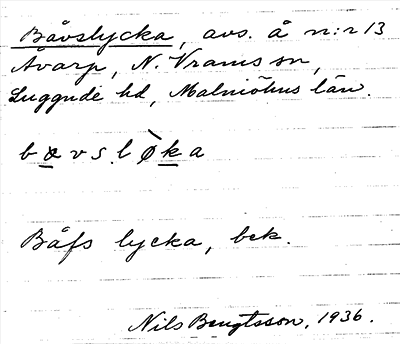 Båvslycka, avs. å n:r 13
Åvarp, N. Vrams sn,
Luggude hd, Malmöhus län.
bævsløka
Båfs lycka, bek.
Nils Bengtsson, 1936.